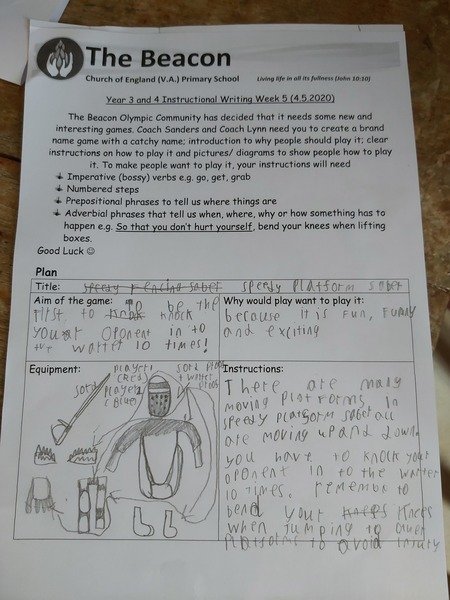 The Beacon
Church of England (V.A.) Primary School
Living life in all its fullness (John 10:10)
Year 3 and 4 Instructional Writing Week 5 (4.5.2020)
The Beacon Olympic Community has decided that it needs some new and
interesting games. Coach Sanders and Coach Lynn need you to create a brand
name game with a catchy name; introduction to why people should play it; clear
instructions on how to play it and pictures/ diagrams to show people how to play
it. To make people want to play it, your instructions will need
Imperative (bossy) verbs e.g. go, get, grab
Numbered steps
Prepositional phrases to tell us where things are
Adverbial phrases that tell us when, where, why or how something has to
happen e.g. So that you don't hurt yourself, bend your knees when lifting
boxes.
Good Luck ☺
Plan
Title: speedy fencing saber speedy platform saber
Aim of the game: To be the
first to knock
your oponent in to
the watter 10 times!
Why would play want to play it:
because it is fun, funny
and exciting
Equipment:
player 1
(Red)
player 2
(Blue)
Instructions:
There are many
moving platforms. in
speedy platform saber all
are moving up and down.
you have to knock your
oponent in to the watter
10 times. remember to
bend your knees knees
when jumping to other
platforms to avoid injury